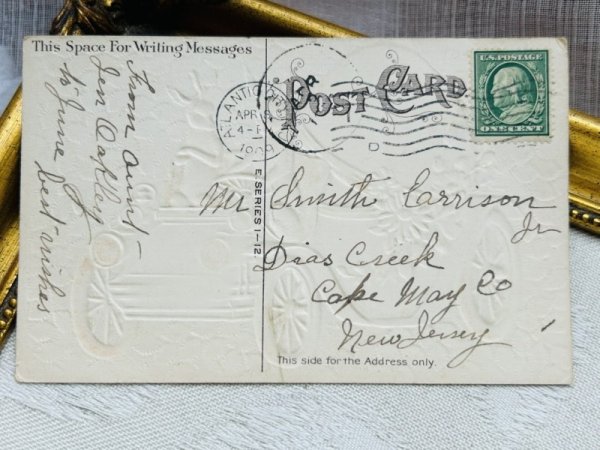 This Space For Writing Messages
From Aunt
Jen Oakley
to June
best wishes
POST CARD
ATLANTIC
APR
4-P
1909
U.S. POSTAGE
ONE CENT
E SERIES 1-12
Mr Smith Carrison
Jr
Dias Creek
Cape May Co
New Jersey
This side for the Address only.